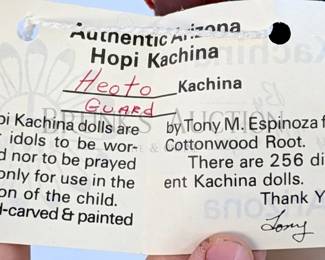 Authentic Arizona
Hopi Kachina
Heoto Kachina
GUARD
pi Kachina dolls are
idols to be wor-
d nor to be prayed
only for use in the
on of the child.
d-carved & painted
by Tony M. Espinoza f
Cottonwood Root.
There are 256 di
ent Kachina dolls.
Thank Y
Tony